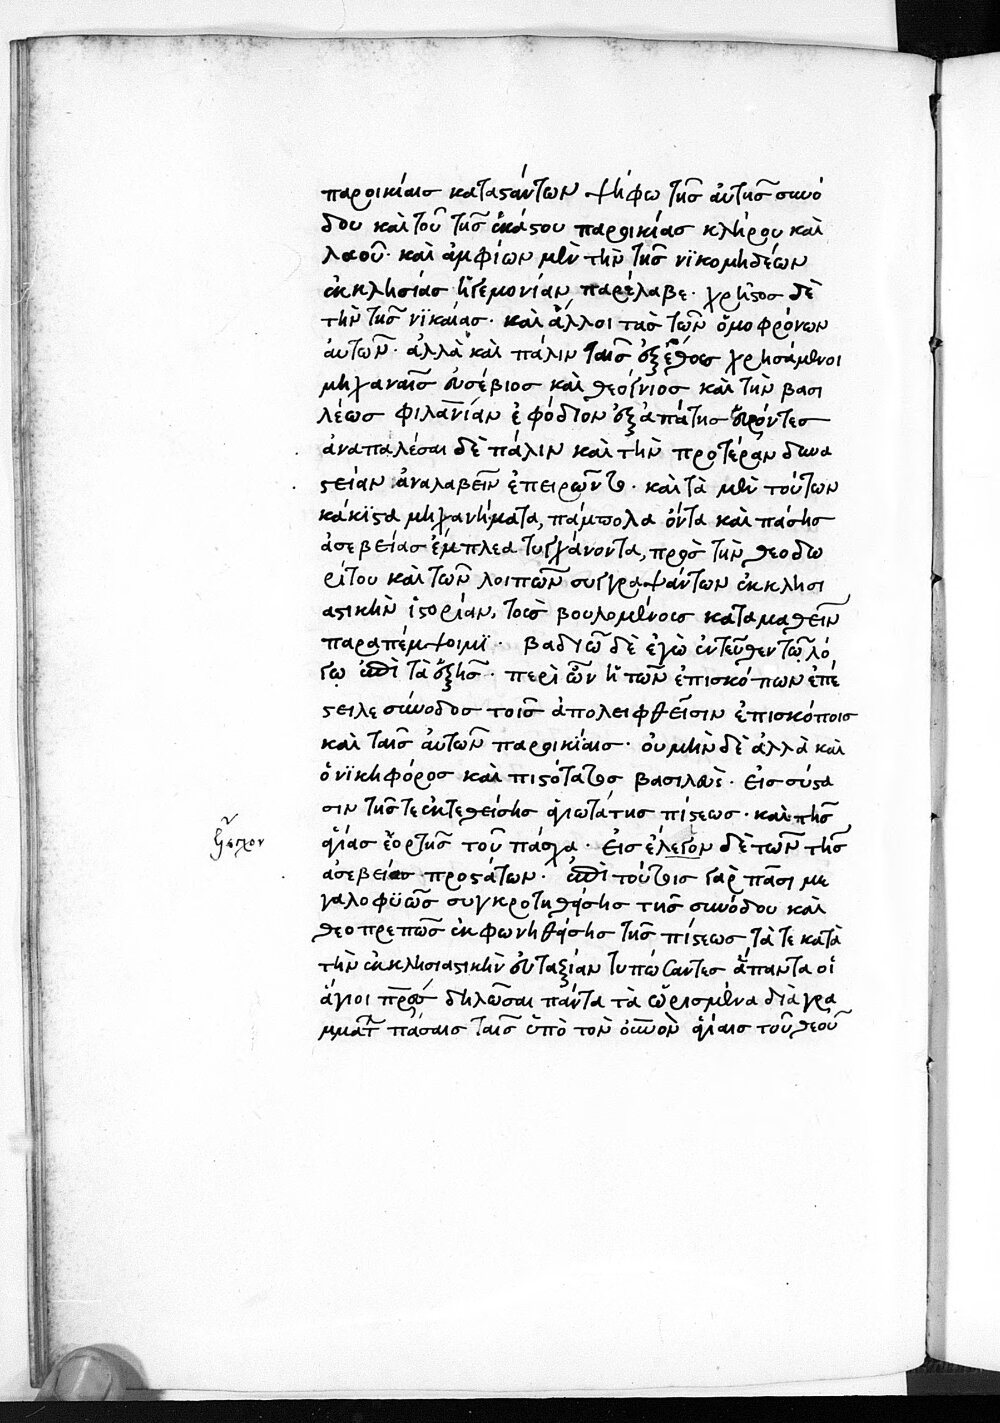 παροικίαις καταστάντων ψήφω τῆς αὐτῆς συνό
δου καὶ τοῦ τῆς ἑκάστου παροικίας κλήρου καὶ
λαοῦ· καὶ ἀμφίων μὲν τὴν τῆς νϊκομηδέων
ἐκκλησίας ἡγεμονίαν παρέλαβε· χρῆστος δὲ
τὴν τῆς νϊκαίας· καὶ ἄλλοι τὰς τῶν ὁμοφρόνων
αὐτῶν· ἀλλὰ καὶ πάλιν ταῖς ἐξ ἔθους χρησάμενοι
μηχαναῖς εὐσέβιος καὶ θεόγνιος καὶ τὴν βασι
λέως φιλανίαν ἐφόδιον ἐξαπάτης εὑρόντες
ἀναπαλέσαι δὲ πάλιν καὶ τὴν προτέραν δυνα
στείαν ἀναλαβεῖν ἐπειρῶντο· καὶ τὰ μὲν τούτων
κάκϊστα μηχανήματα, πάμπολα ὄντα καὶ πάσης
ἀσεβείας ἔμπλεα τυγχάνοντα, πρὸς τὴν θεοδω
ρίτου καὶ τῶν λοιπῶν συγγραψάντων ἐκκλησι
αστικὴν ἱστορίαν, τοὺς βουλομένους καταμαθεῖν
παραπέμψοιμϊ· βαδιῶ δὲ ἐγὼ ἐντεῦθεν τῷ λό
γῳ ἐπὶ τὰ ἑξῆς· περὶ ὧν ἡ τῶν ἐπισκόπων ἐπέ
στειλε σύνοδος τοῖς ἀπολειφθεῖσιν ἐπισκόποις
καὶ ταῖς αὐτῶν παροικίαις· οὐ μὴν δὲ ἀλλὰ καὶ
ὁ νϊκηφόρος καὶ πιστότατος βασιλεὺς· εἰς σύστα
σιν τῆς τε ἐκτεθείσης ἁγιωτάτης πίστεως· καὶ τῆς
ἁγίας ἑορτῆς τοῦ πάσχα· εἰς ἔλεγον δὲ τῶν τῆς
ἔλεγχον
ἀσεβείας προστάτων· ἐπὶ τούτοις γὰρ πᾶσι με
γαλοφϋῶς συγκροτηθείσης τῆς συνόδου καὶ
θεοπρεπῶς ἐκφωνηθείσης τῆς πίστεως, τά τε κατὰ
τὴν ἐκκλησιαστικὴν εὐταξίαν τυπώσαντες ἅπαντα οἱ
ἅγιοι πρ̅ς δηλῶσαι πάντα τὰ ὡρισμένα διὰ γρα
μμάτ πάσαις ταῖς ὑπὸ τὸν οὐ̅νὸν ἁγίαις τοῦ θεοῦ